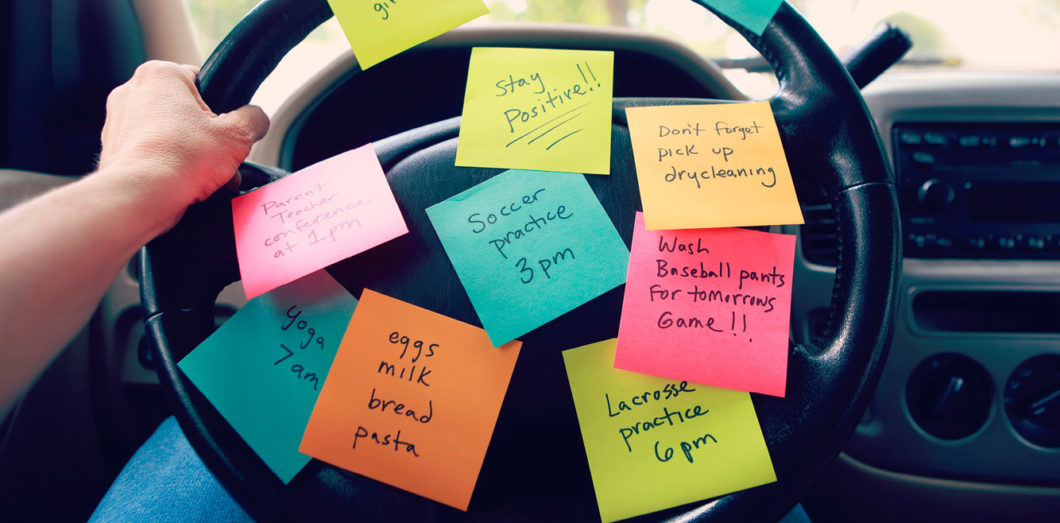 stay
Positive!!
Don't forget
pick up
drycleaning
Parent
Teacher
conference
at 1pm
Soccer
practice
3pm
Wash
Baseball pants
for tomorrows
Game!!
Yoga
7am
eggs
milk
bread
pasta
Lacrosse
practice
6pm